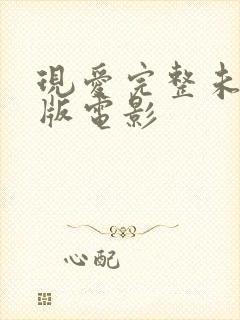 現愛完整未
版電影
心配